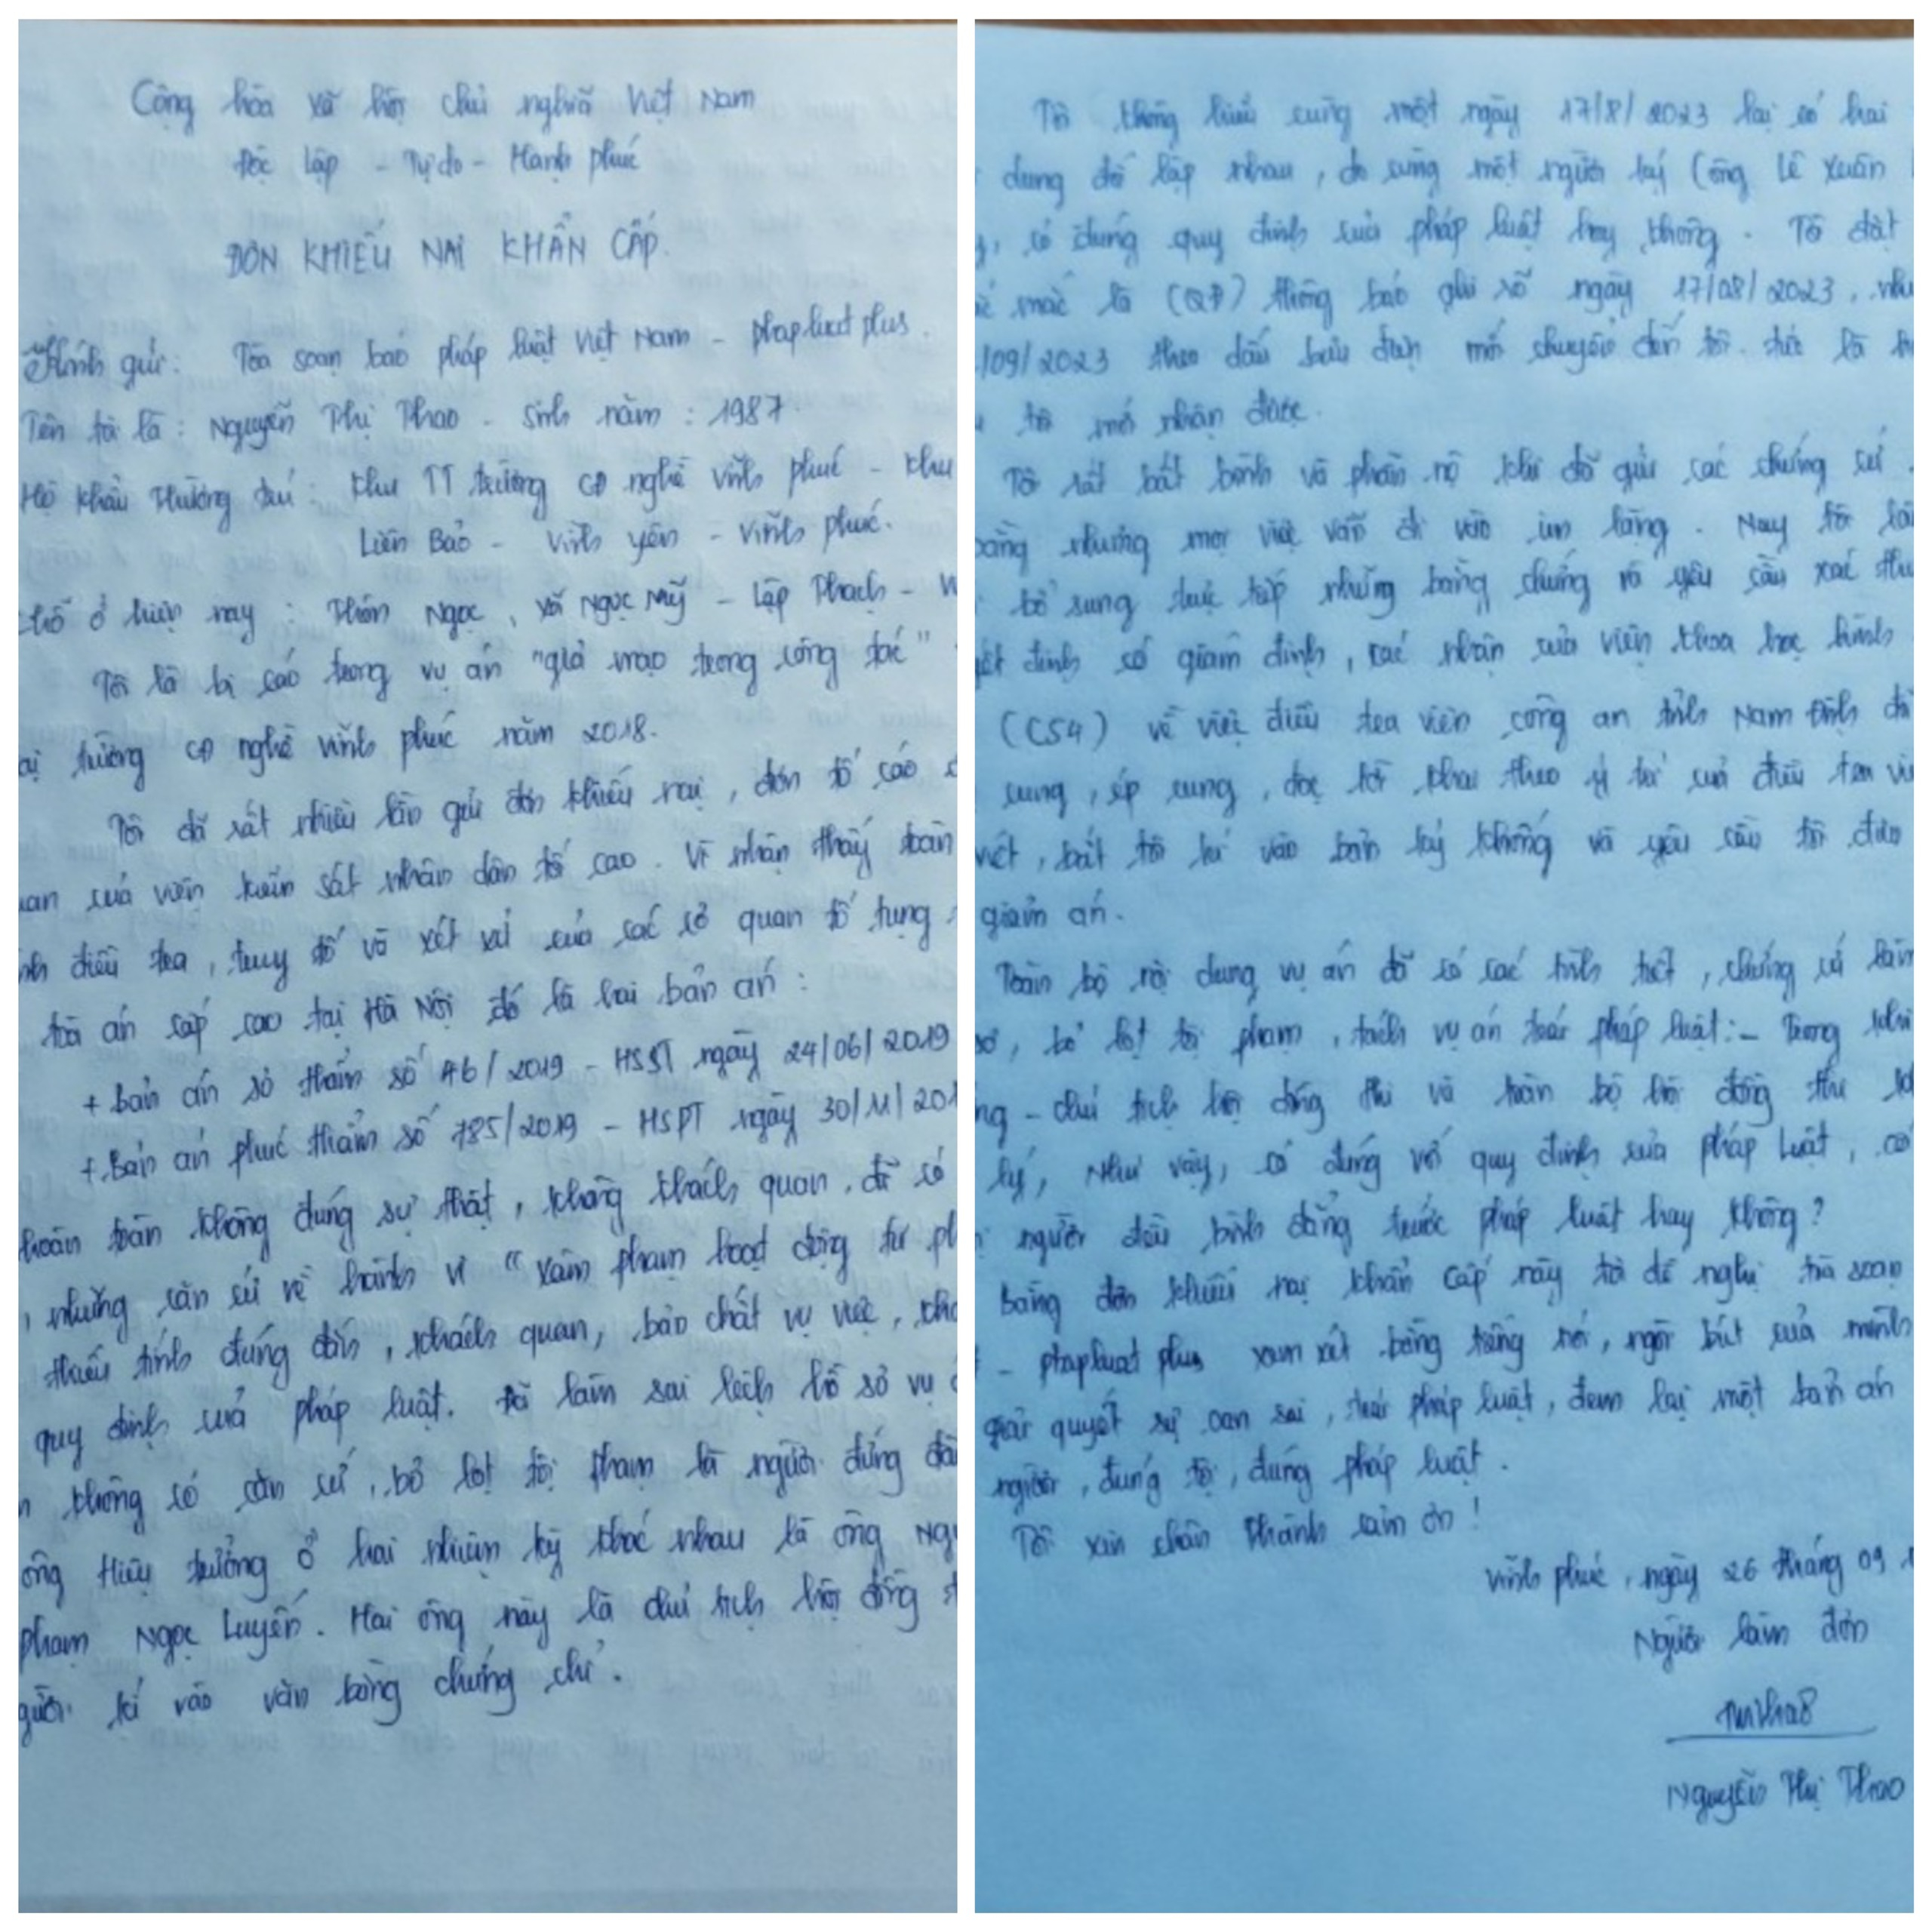 Cộng hòa xã hội chủ nghĩa Việt Nam
Độc lập - Tự do - Hạnh phúc
ĐƠN KHIẾU NẠI KHẨN CẤP.
Kính gửi: Tòa soạn báo pháp luật Việt Nam - phapluat plus.
Tên tôi là: Nguyễn Thị Thao - Sinh năm: 1987
Hộ khẩu thường trú: Khu TT trường CĐ nghề Vĩnh phúc - khu
Liên Bảo - Vĩnh yên - Vĩnh phúc.
chỗ ở hiện nay: Thôn Ngọc, xã Ngọc Mỹ - Lập Thạch -
Tôi là bị cáo trong vụ án "giả mạo trong công tác"
tại trường CĐ nghề Vĩnh phúc năm 2018.
Tôi đã rất nhiều lần gửi đơn khiếu nại, đơn tố cáo
quan của viện kiểm sát nhân dân tối cao. Vì nhận thấy toàn
điều tra, truy tố và xét xử của các cơ quan tố tụng
tòa án cấp cao tại Hà Nội đó là hai bản án:
+ Bản án sơ thẩm số 46/2019 - HSST ngày 24/06/2019
+ Bản án phúc thẩm số 785/2019 - HSPT ngày 30/11/201
hoàn toàn không đúng sự thật, không khách quan, đã có
những căn cứ về hành vi "xâm phạm hoạt động tư ph
thiếu tính đúng đắn, khách quan, bản chất vụ việc,
quy định của pháp luật. Đã làm sai lệch hồ sơ vụ
không có căn cứ, bỏ lọt tội phạm là người đứng đầ
ông Hiệu trưởng ở hai nhiệm kỳ khác nhau là ông Ngu
phạm Ngọc Luyến. Hai ông này là chủ tịch hội đồng
người kí vào văn bằng chứng chỉ.
Tôi không hiểu cùng một ngày 17/8/2023 lại có hai
dung đối lập nhau, do cùng một người ký (ông Lê Xuân
có đúng quy định của pháp luật hay không. Tôi đặt
mắc là (QĐ) thông báo ghi số ngày 17/08/2023, như
/09/2023 theo dấu bưu điện mới chuyển đến tôi. tức là
tôi mới nhận được.
Tôi rất bất bình và phẫn nộ khi đã gửi các chứng cứ
bằng nhưng mọi việc vẫn đi vào im lặng. Nay tôi là
bổ sung trực tiếp những bằng chứng và yêu cầu xác th
định có giám định, xác nhận của viện khoa học hình
(C54) về việc điều tra viên công an tỉnh Nam Định đã
cung, ép cung, đọc lời khai theo ý trí của điều tra vi
viết, bắt tôi kí vào bản ký khống và yêu cầu tôi đưa
giảm án.
Toàn bộ nội dung vụ án đã có các tình tiết, chứng cứ làm
bỏ lọt tội phạm, tách vụ án trái pháp luật: - Trong khi
ng - chủ tịch hội đồng thi và toàn bộ hội đồng thi
lý, Như vậy, có đúng với quy định của pháp luật, có
người đều bình đẳng trước pháp luật hay không?
Bằng đơn khiếu nại khẩn cấp này tôi đề nghị tòa soạn
- phapluat plus xem xét bằng tiếng nói, ngòi bút của mình
giải quyết sự oan sai, trái pháp luật, đem lại một bản án
người, đúng tội, đúng pháp luật.
Tôi xin chân thành cảm ơn!
Vĩnh phúc, ngày 26 tháng 09
Người làm đơn
Nguyễn Thị Thao